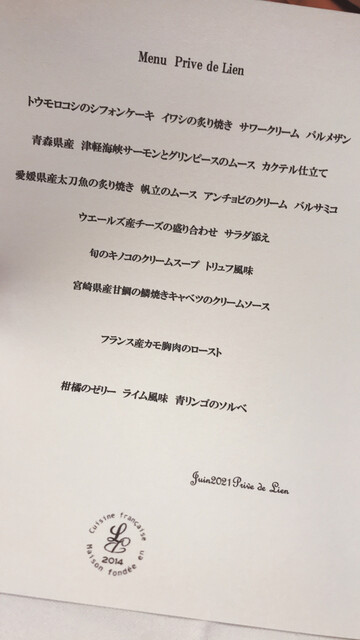 Menu Prive de Lien
トウモロコシのシフォンケーキ イワシの炙り焼き サワークリーム パルメザン
青森県産 津軽海峡サーモンとグリンピースのムース カクテル仕立て
愛媛県産太刀魚の炙り焼き 帆立のムース アンチョビのクリーム バルサミコ
ウエールズ産チーズの盛り合わせ サラダ添え
旬のキノコのクリームスープ トリュフ風味
宮崎県産甘鯛の鱗焼きキャベツのクリームソース
フランス産カモ胸肉のロースト
柑橘のゼリー ライム風味 青リンゴのソルベ
Juin2021Prive de Lien
Cuisine française
2014
Maison fondée en